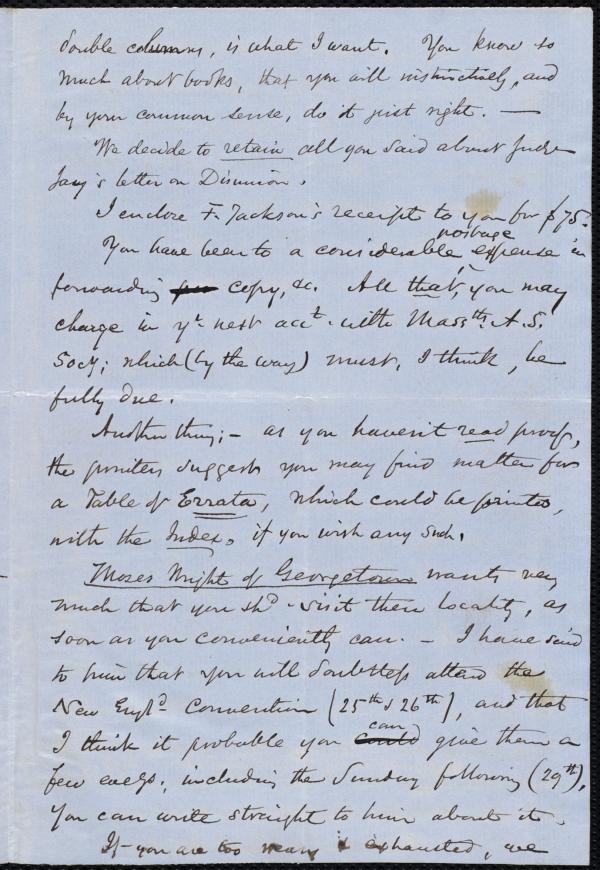 double columns, is what I want. You know so
much about books, that you will instinctively, and
by your common sense, do it just right. —
We decide to retain all you said about Judge
Jay's letter on Disunion.
I enclose F. Jackson's receipt to you for $75.
postage
You have been to a considerable expense in
forwarding copy, &c. All that, you may
charge in yr. next acct. with Massts. A. S.
Socy; which (by the way) must, I think, be
fully due.
Another thing; – as you haven't read proof,
the printer suggests you may find matter for
a Table of Errata, which could be printed,
with the Index, if you wish any such.
Moses Wright of Georgetown wants very
much that you shd. visit their locality, as
soon as you conveniently can. – I have said
to him that you will doubtless attend the
New Engld. Convention (25th & 26th), and that
can
I think it probable you could give them a
few eve'gs, including the Sunday following (29th).
You can write straight to him about it.
If you are too weary & exhausted, we